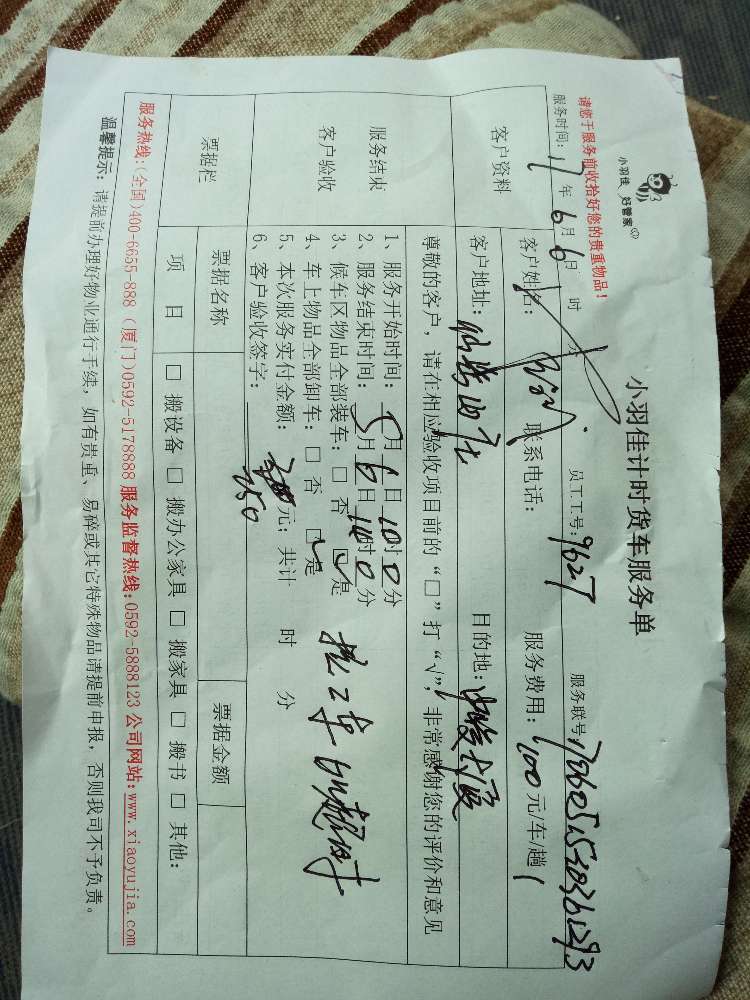 小羽佳 好管家
小羽佳计时货车服务单
请您于服务前收拾好您的贵重物品!
服务时间: 17 年 6 月 6 日 时 分 员工工号: 9627 服务联号:
客户资料
客户姓名: 联系电话: 服务费用: 400 元/车/趟
客户地址: 目的地:
服务结束
客户验收
尊敬的客户,请在相应验收项目前的“□”打“√”,非常感谢您的评价和意见
1、服务开始时间: 5 月 日 10 时 0 分
2、服务结束时间: 月 6 日 时 0 分
3、候车区物品全部装车: □ 否 □ 是
4、车上物品全部卸车: □ 否 □ 是
5、本次服务实付金额: 元; 共计 时 分
6、客户验收签字: 750
票据栏
票据名称 票据金额
项 目 □ 搬设备 □ 搬办公家具 □ 搬家具 □ 搬书 □ 其他:
服务热线:(全国)400-6655-888 (厦门)0592-5178888 服务监督热线:0592-5888123 公司网站:www.xiaoyujia.com
温馨提示: 请提前办理好物业通行手续,如有贵重、易碎或其它特殊物品请提前申报,否则我司不予负责。